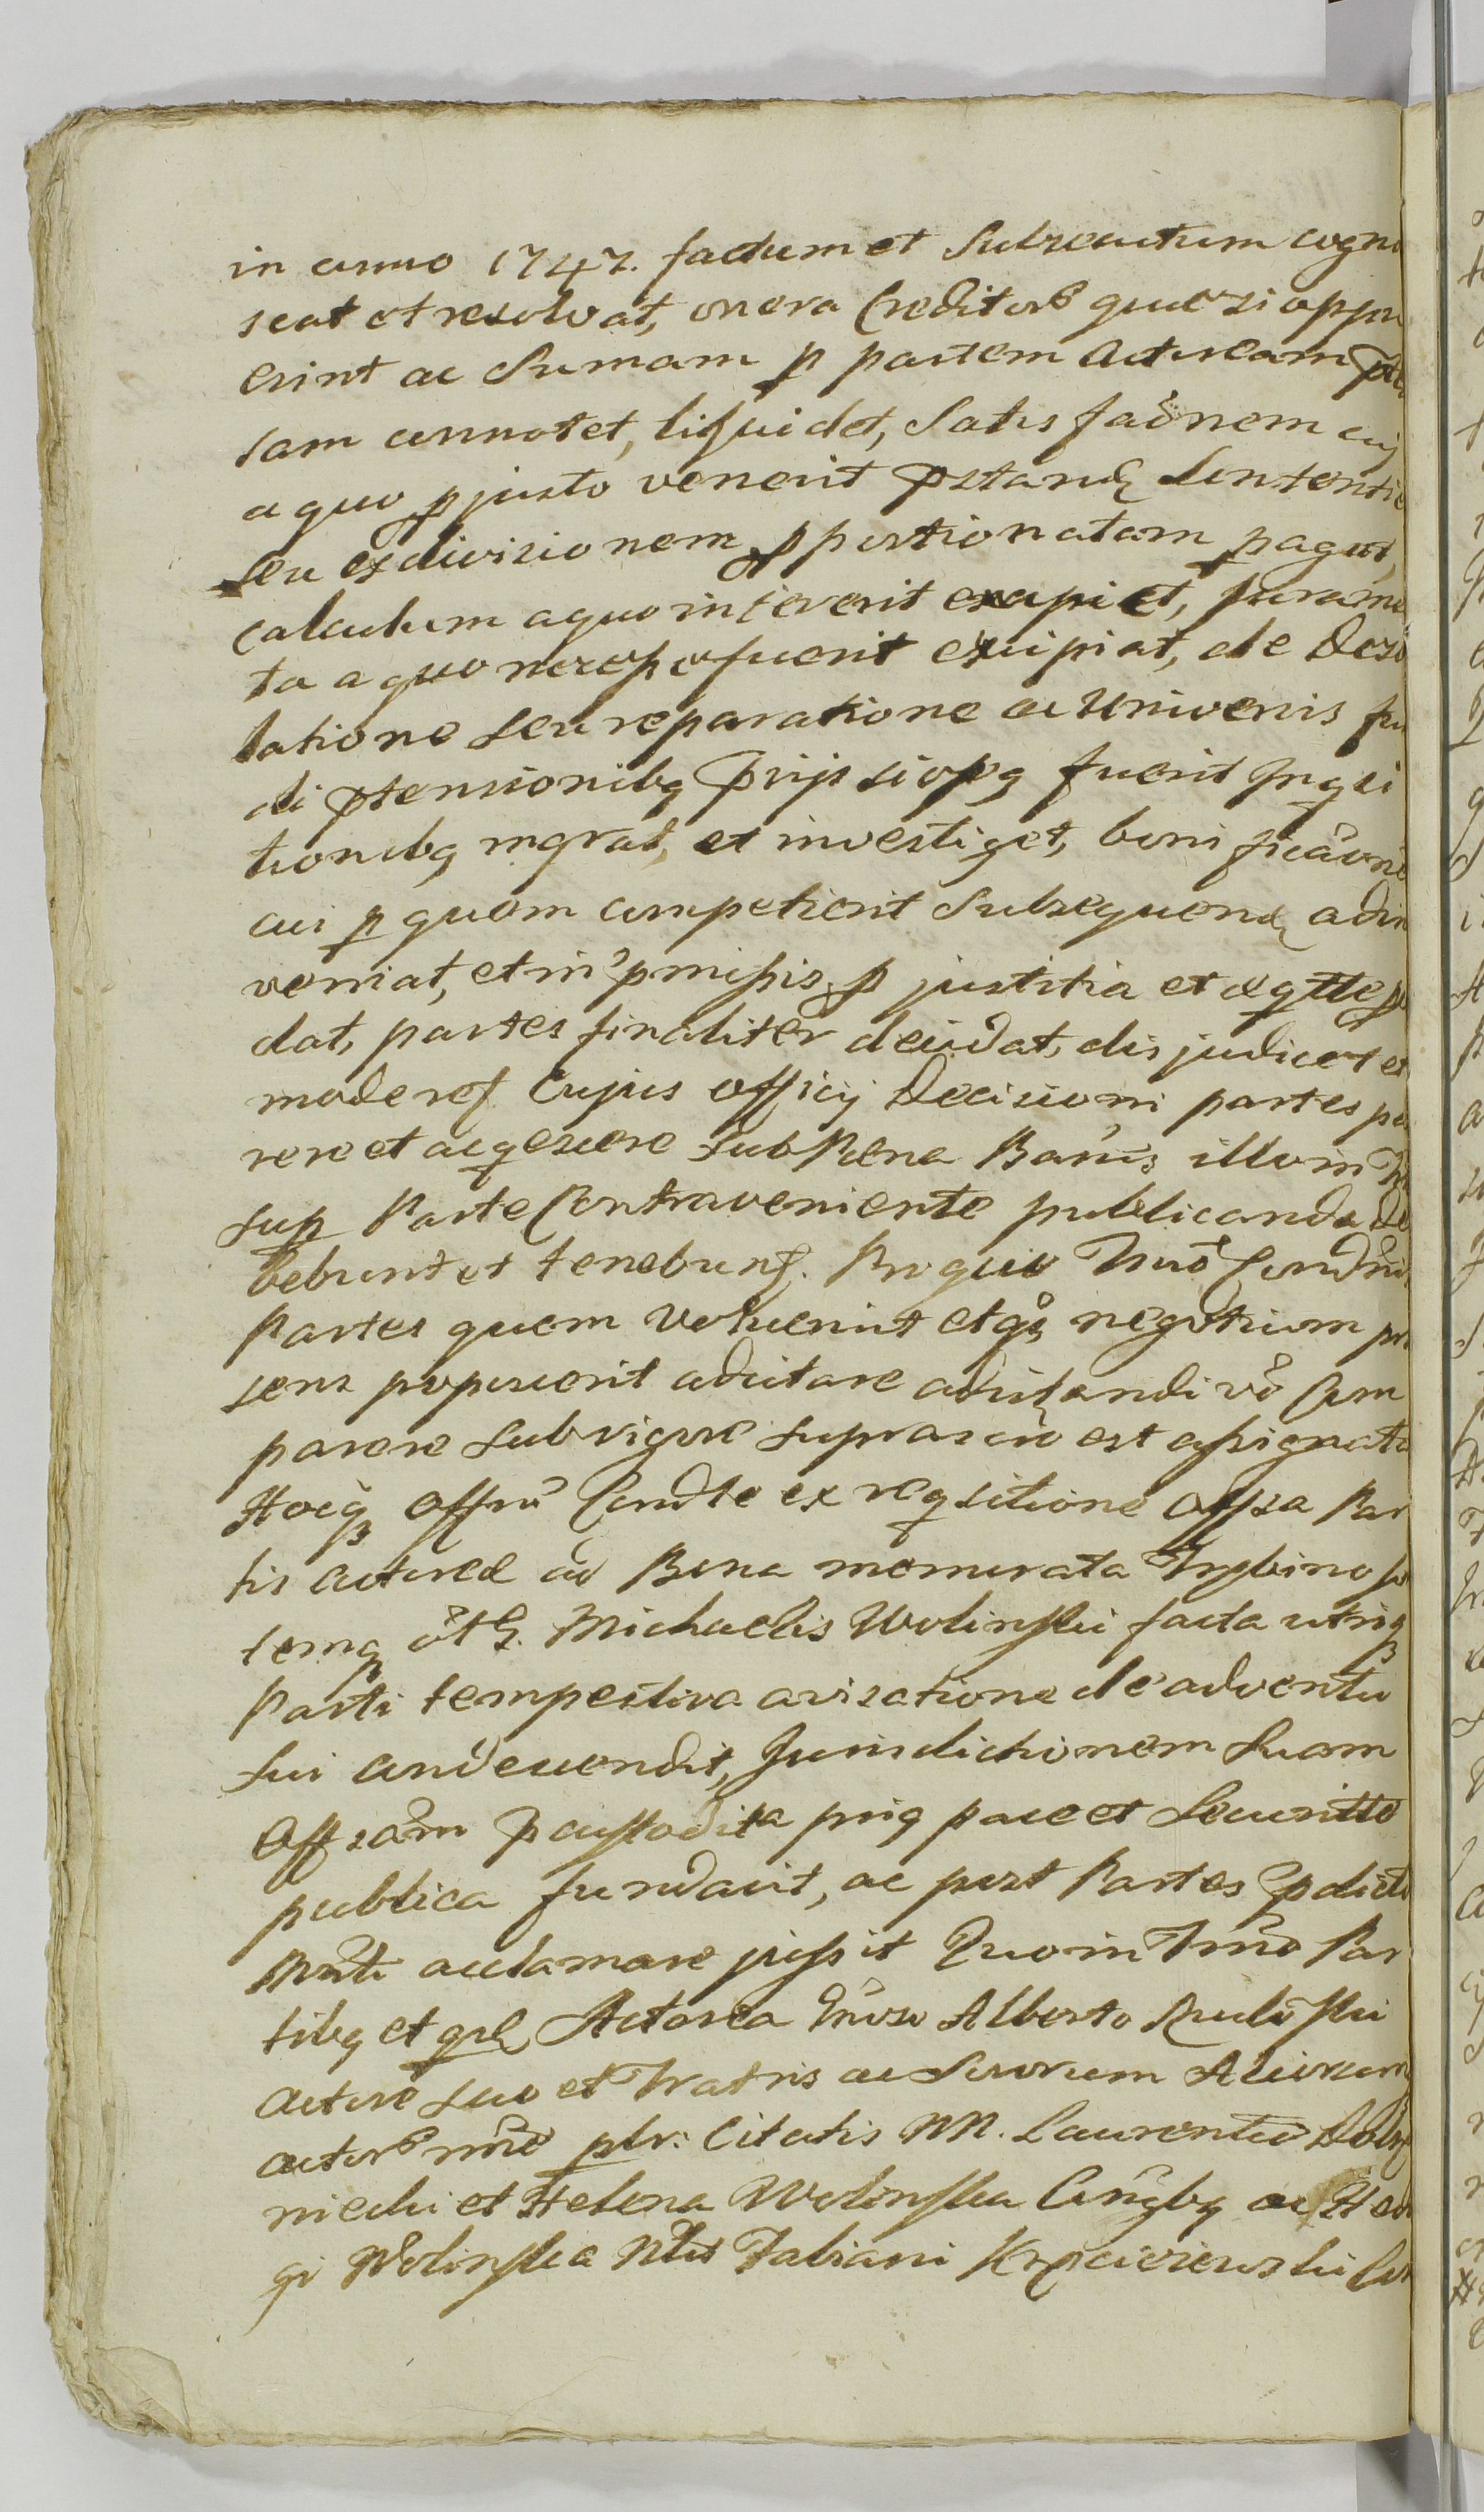 in anno 1747. factum et Subsecutum cogno
scat et resolvat, onera Creditorũ quae si appa
erint ac Sumam p partem Actoream p̃ten
sam connotet, liquidet, Satisfaõnem cuj
a quo p justo venerit p̃standę Sententie
seu ex divisionem ppportionatam pagat,
calculum a quo intererit exapiet, jurame
ta a quo neces. fuerit excipiat, de Deso
latione seu reparatione ac Universis fun
di p̃tensionibq p̃vijs si opq fuerit Inqsi
tionibq inqrat, et investiget, bonificãone
cui p quem competierit Subsequendę adin
veniat, et in p̃missis p justitia et aeqtte p
dat, partes finaliter decidat, disjudicet et
moderet. Cujus officij Decisioni partes pa
rere et acqescere sub Paena Banis illom in
sup Parte Contraveniente publicanda De
bebunt et tenebunt. Pro quo Trnõ Condno
Partes quem voluerint et qs negotium pre
sens poposcerit adcitare adcitandi võ Com
parere sub vigore suprascio est assignata
Hocq Offm Condte ex reqsitione Offsa Par
tis Actoreae ad Bona memorata
 õl G. Michaelis Wolinski facta utriq
Parti tempestiva avisatione de adventu
sui condescendit, Jurisdictionem Suam
Offsãm p custodita priq pace et Securitte
publica fundavit, ac post Partes p̃dicti
Mñti acclamare jussit Quo in Trnõ Par
tibq et qrl Actorea Gñoso Alberto
Actore suo et Fratris ac Sororum Aliorum
Actorũ nõie plr: Citatis MM. Laurentio
 et Helena Wolinska Cõnjgbq ac Hed
gi Wolinska Fabiani Con